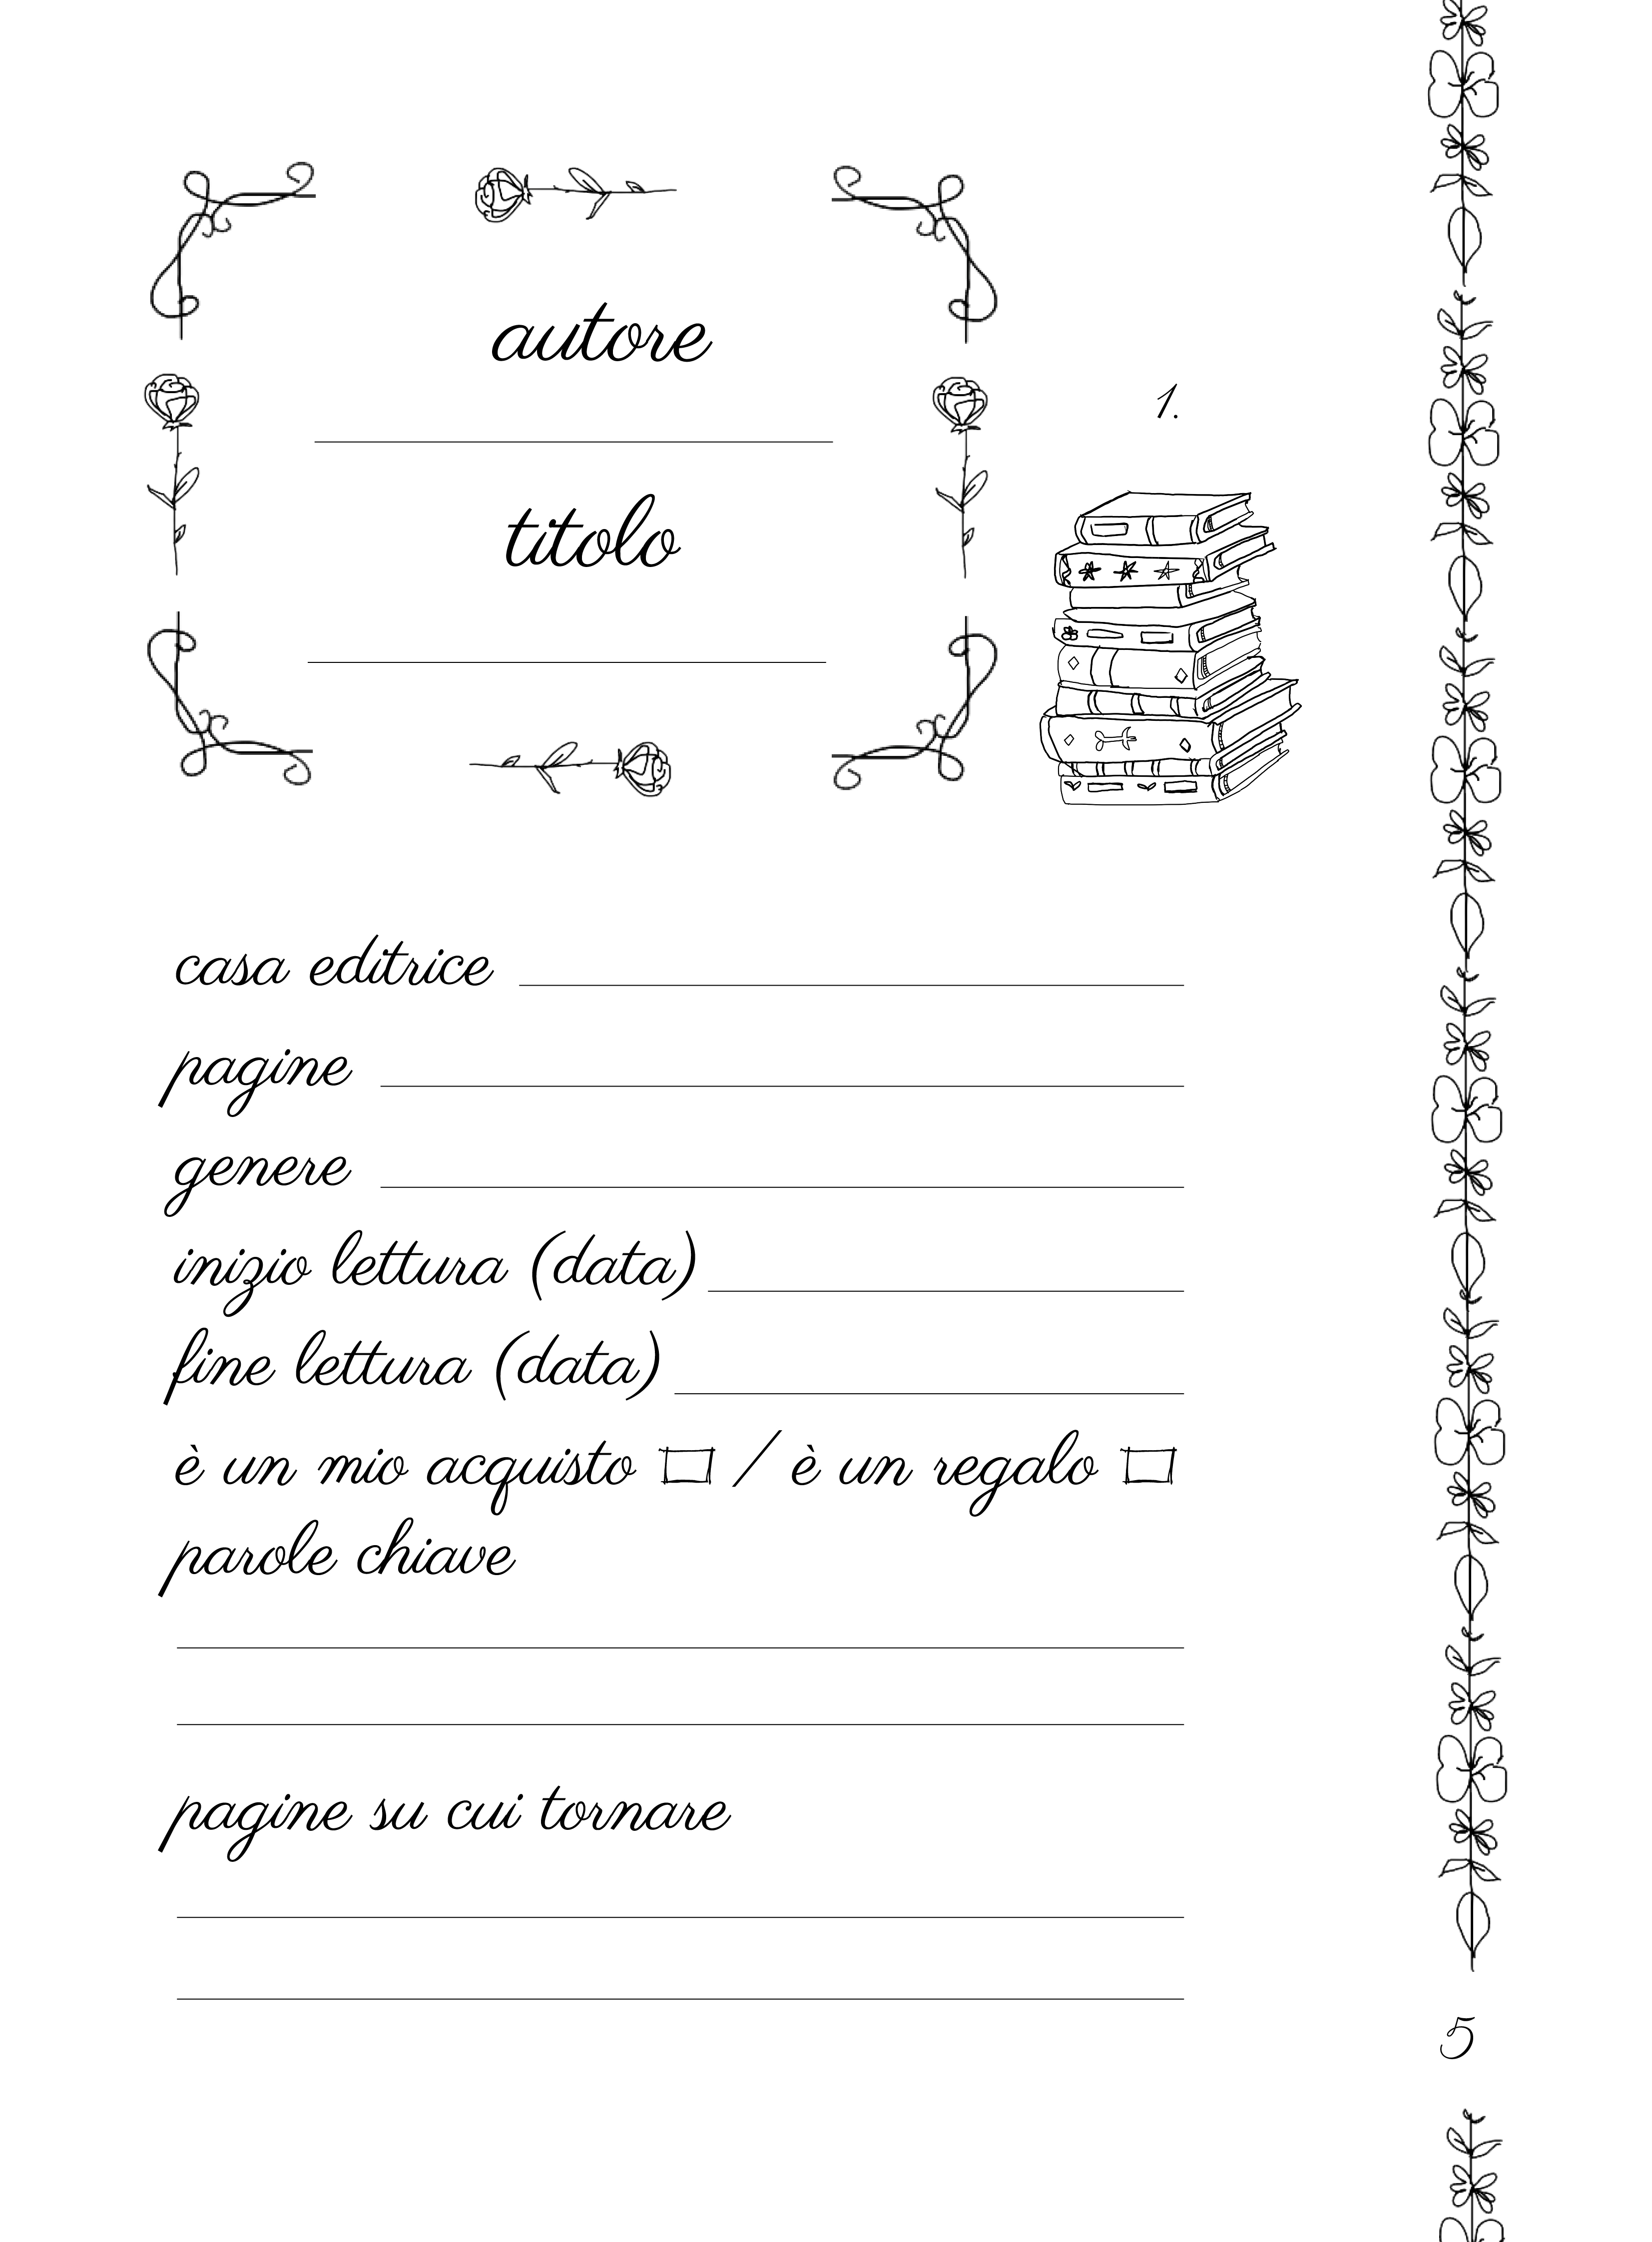 autore
titolo
1.
casa editrice
pagine
genere
inizio lettura (data)
fine lettura (data)
è un mio acquisto / è un regalo
parole chiave
pagine su cui tornare
5